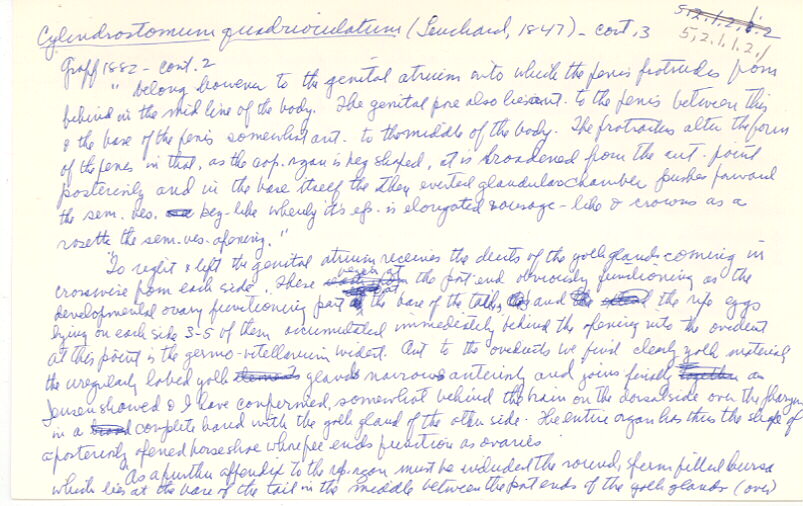 5,2,1,2,1.2
5,2,1,1,2,1
Cylindrostomum quadrioculatum (Leuckard, 1847) - cont. 3
Graff 1882 - cont. 2
" belong however to the genital atrium into which the penis protrudes from
behind in the mid line of the body. The genital pore also lies ant. to the penis between this
& the base of the penis somewhat ant. to the middle of the body. The protractors alter the form
of the penis in that, as the cop. organ is peg shaped, it is broadened from the ant. point
posteriorly and in the base itself the then everted glandular chamber pushes forward
the sem. ves. peg-like whereby it's ep. is elongated sausage-like & crowns as a
rosette the sem. ves. opening."
"To right & left the genital atrium receives the ducts of the yolk glands coming in
crosswise from each side. These the post end obviously functioning as the
developmental ovary functioning part the base of the tail and the ripe eggs
lying on each side 3-5 of them accumulated immediately behind the opening into the oviduct
at this point is the germo-vitellarium widest. Ant to the oviducts we find clearly yolk material,
the irregularly lobed yolk glands narrows anteriorly and joins finally as
Jensen showed & I have confirmed, somewhat behind the brain on the dorsal side over the pharynx
in a complete band with the yolk gland of the other side. The entire organ has thus the shape of
a posteriorly opened horseshoe whose free ends function as ovaries.
As a further appendix to the rep. organ must be included the round, sperm filled bursa
which lies at the base of the tail in the middle between the post ends of the yolk glands (over)